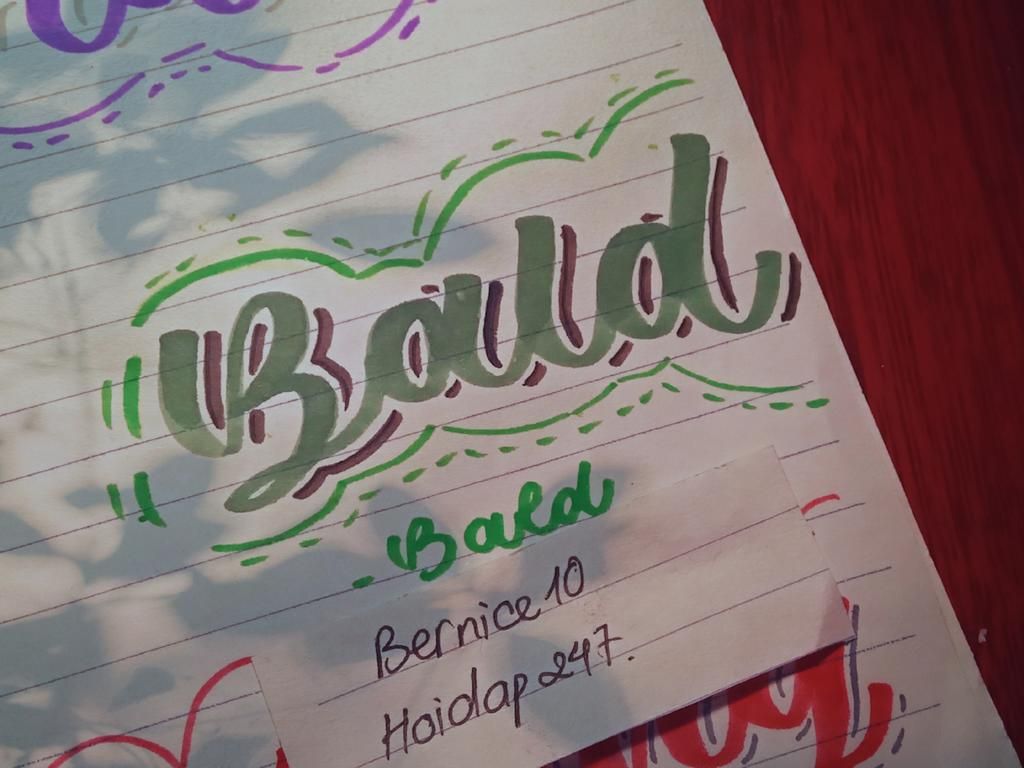 Bald
Bald
Bernice 10
Hoidap247.